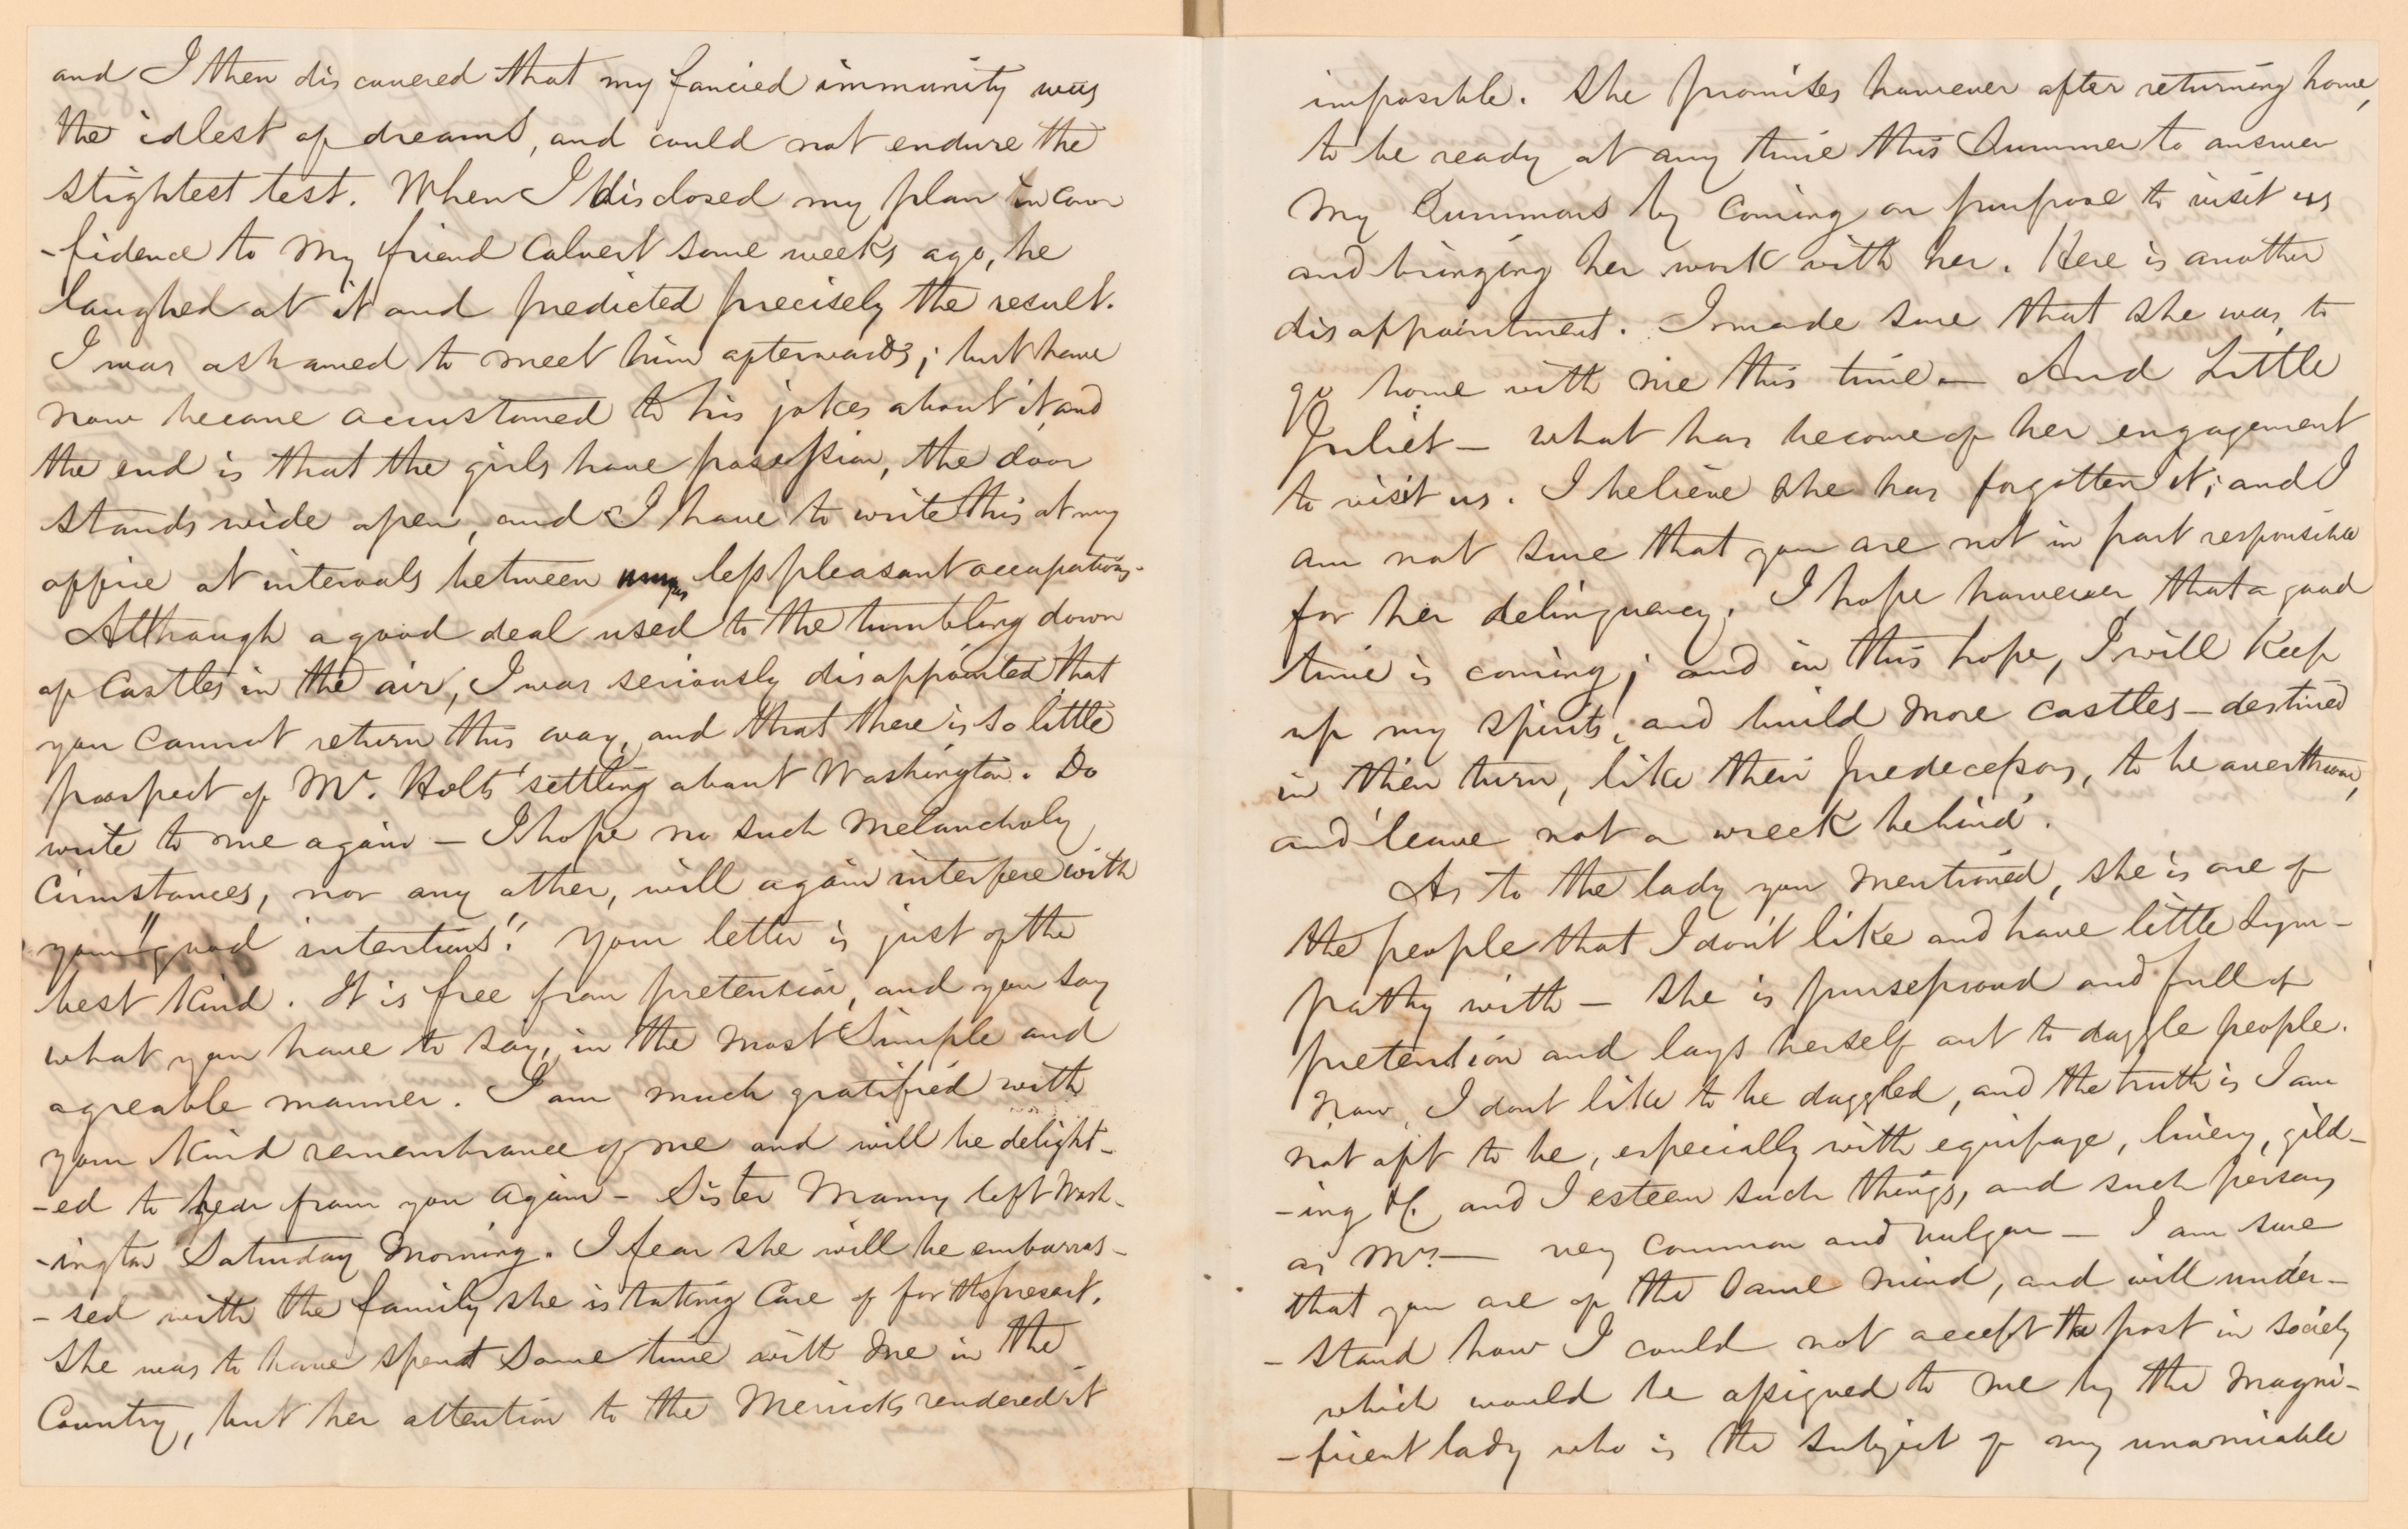 and I then discovered that my fancied immunity was
the idlest of dreams, and could not endure the
slightest test. When I disclosed my plan in con
-fidence to my friend Calvert some weeks ago, he
laughed at it and predicted precisely the result.
I was ashamed to meet him afterwards; but have
now become accustomed to his jokes about it, and
the end is that the girls have possession, the door
stands wide open, and I have to write this at my
office at intervals between less pleasant occupations.
Although a good deal used to the tumbling down
of Castles in the air, I was seriously disappointed that
you cannot return this way, and that there is so little
prospect of Mr. Holts' settling about Washington. Do
write to me again — I hope no such melancholy
Cirmstances, nor any other, will again interfere with
your "good intentions". Your letter is just of the
best kind. It is free from pretension, and you say
what you have to say, in the most simple and
agreable manner. I am much gratified with
your kind remembrance of me and will be delight-
-ed to hear from you again — Sister Nanny left Wash-
-ington Saturday Morning. I fear she will be embarras-
-sed with the family she is taking Care of for the present.
She was to have spent some time with me in the
Country, but her attention to the Merricks rendered it
impossible. She promises however after returning home,
to be ready at any time this Summer to answer
my Summons by coming on purpose to visit us
and bringing her work with her. Here is another
disappointment. I made sure that she was to
go home with me this time — And Little
Juliet — what has become of her engagement
to visit us. I believe she has forgotten it; and I
am not sure that you are not in part responsible
for her delinquency. I hope however that a good
time is coming; and in this hope, I will keep
up my spirits, and build more castles — destined
in their turn, like their predecessors, to be overthrown,
and leave not a wreck behind.
As to the lady you mentioned, she is one of
the people that I don't like and have little sym-
pathy with — She is purseproud and full of
pretension and lays herself out to dazzle people.
Now, I dont like to be dazzled, and the truth is I am
not apt to be, especially with equipage, livery, gild-
-ing &c. and I esteem such things, and such persons
as Mrs. — very common and vulgar — I am sure
that you are of the same mind, and will under-
-stand how I could not accept the post in society
which would be assigned to me by the magni-
-ficent lady who is the subject of my unamiable